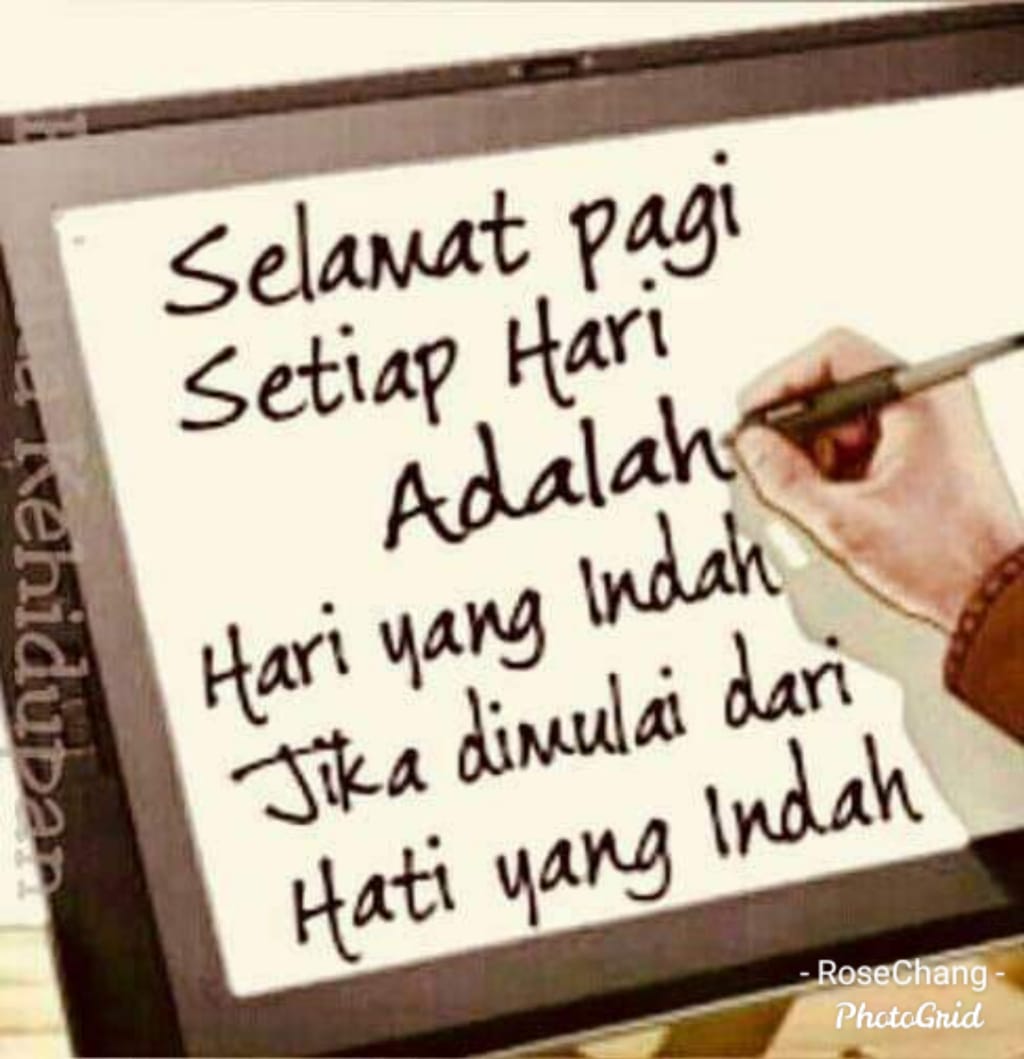 Selamat pagi
Setiap Hari
Adalah
Hari yang Indah
Jika dimulai dari
Hati yang Indah
Kehidupan
- RoseChang -
PhotoGrid